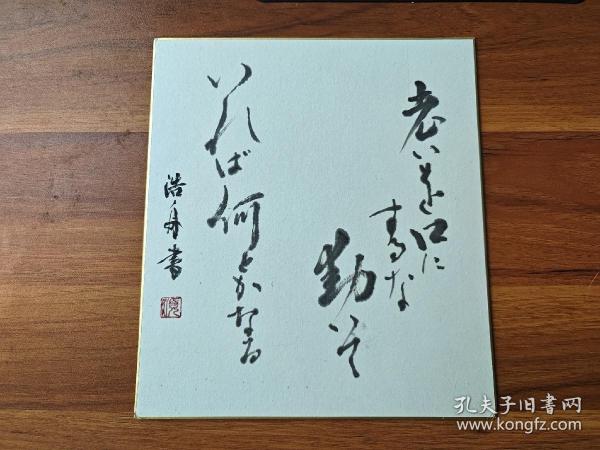 老いを口に
するな
動いて
いれば何とかなる
浩舟書
孔夫子旧書网
www.kongfz.com